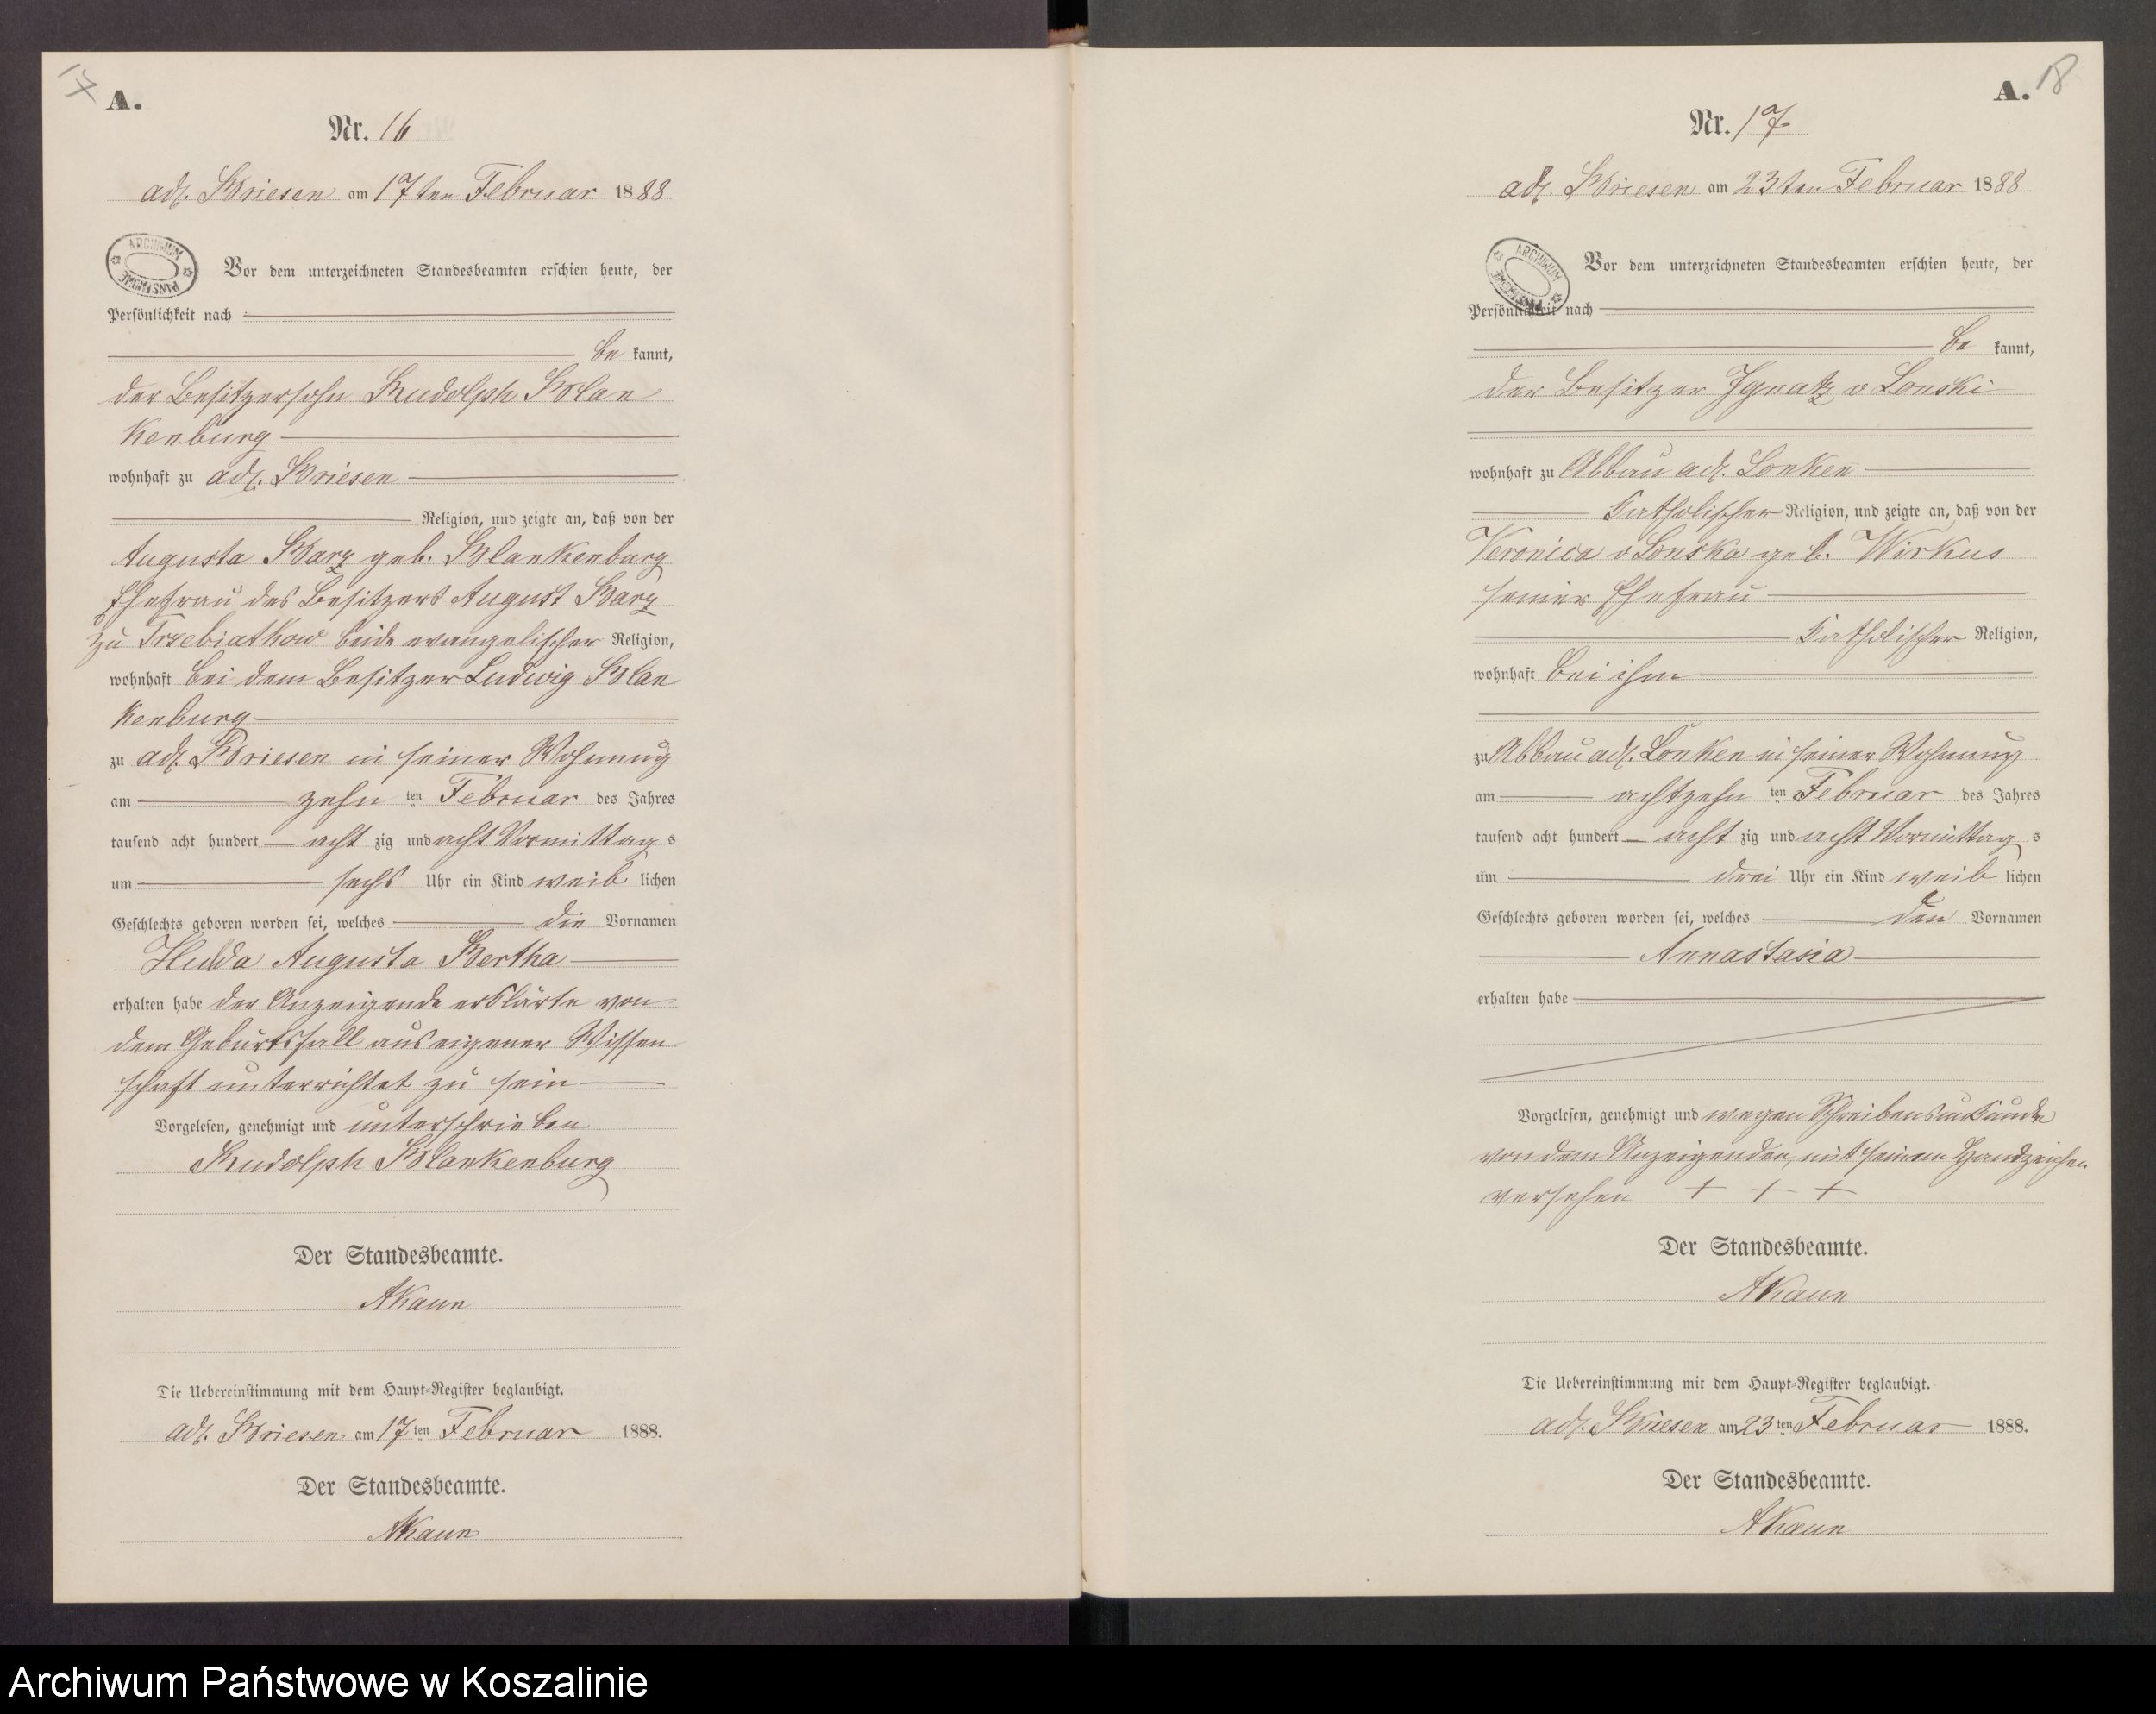 17
A.
Nr. 16
adl. Briesen am 17ten Februar 1888
ARCHIWUM PAŃSTWOWE
Vor dem unterzeichneten Standesbeamten erschien heute, der
Persönlichkeit nach
be kannt,
der Besitzersohn Rudolph Blan
kenburg
wohnhaft zu adl. Briesen
Religion, und zeigte an, daß von der
Augusta Barz geb. Blankenburg
Ehefrau des Besitzers August Barz
zu Trzebiatkow beide evangelischer Religion,
wohnhaft bei dem Besitzer Ludwig Blan
kenburg
zu adl. Briesen in seiner Wohnung
am zehn ten Februar des Jahres
tausend acht hundert acht zig und acht Vormittag s
um sechs Uhr ein Kind weib lichen
Geschlechts geboren worden sei, welches die Vornamen
Hulda Augusta Bertha
erhalten habe der Anzeigende erklärte von
dem Geburtsfall aus eigener Wissen
schaft unterrichtet zu sein
Vorgelesen, genehmigt und unterschrieben
Rudolph Blankenburg
Der Standesbeamte.
AKaun
Die Uebereinstimmung mit dem Haupt-Register beglaubigt.
adl. Briesen am 17ten Februar 1888.
Der Standesbeamte.
AKaun
A. 18
Nr. 17
adl. Briesen am 23ten Februar 1888
ARCHIWUM PAŃSTWOWE
Vor dem unterzeichneten Standesbeamten erschien heute, der
Persönlichkeit nach
be kannt,
der Besitzer Ignatz v Lonski
wohnhaft zu Abbau adl. Lonken
Katholischer Religion, und zeigte an, daß von der
Veronica v Lonska geb. Wirkus
seiner Ehefrau
Katholischer Religion,
wohnhaft bei ihm
zu Abbau adl. Lonken in seiner Wohnung
am achtzehn ten Februar des Jahres
tausend acht hundert acht zig und acht Vormittag s
um drei Uhr ein Kind weib lichen
Geschlechts geboren worden sei, welches den Vornamen
Annastasia
erhalten habe
Vorgelesen, genehmigt und wegen Schreibensunkunde
von dem Anzeigenden, mit seinem Handzeichen
versehen + + +
Der Standesbeamte.
AKaun
Die Uebereinstimmung mit dem Haupt-Register beglaubigt.
adl. Briesen am 23ten Februar 1888.
Der Standesbeamte.
AKaun
Archiwum Państwowe w Koszalinie